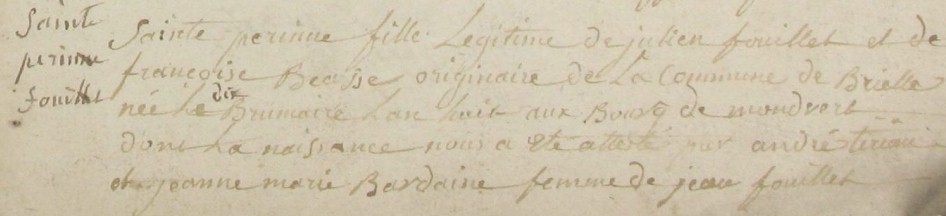 Sainte
perinne
fouillet
Sainte perinne fille Legitime de julien fouillet et de
francoise Beasse originaire de La Commune de Brielle
née le dix Brumaire Lan huit aux Bourg de mondvert
dont La naissance nous a été attesté par andré
et jeanne marie Bardaine femme de jean fouillet